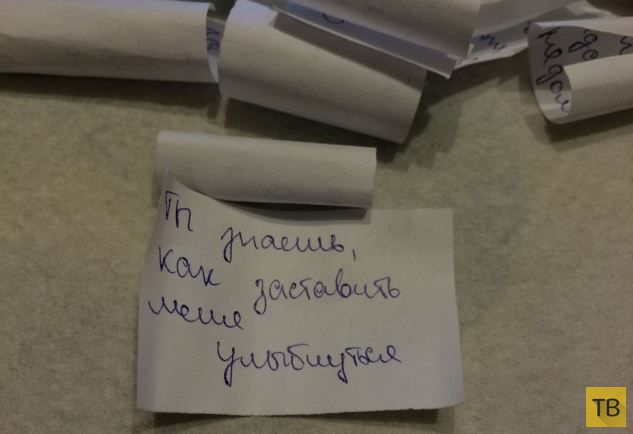 Ты знаешь,
как заставить
меня
улыбнуться
ТВ